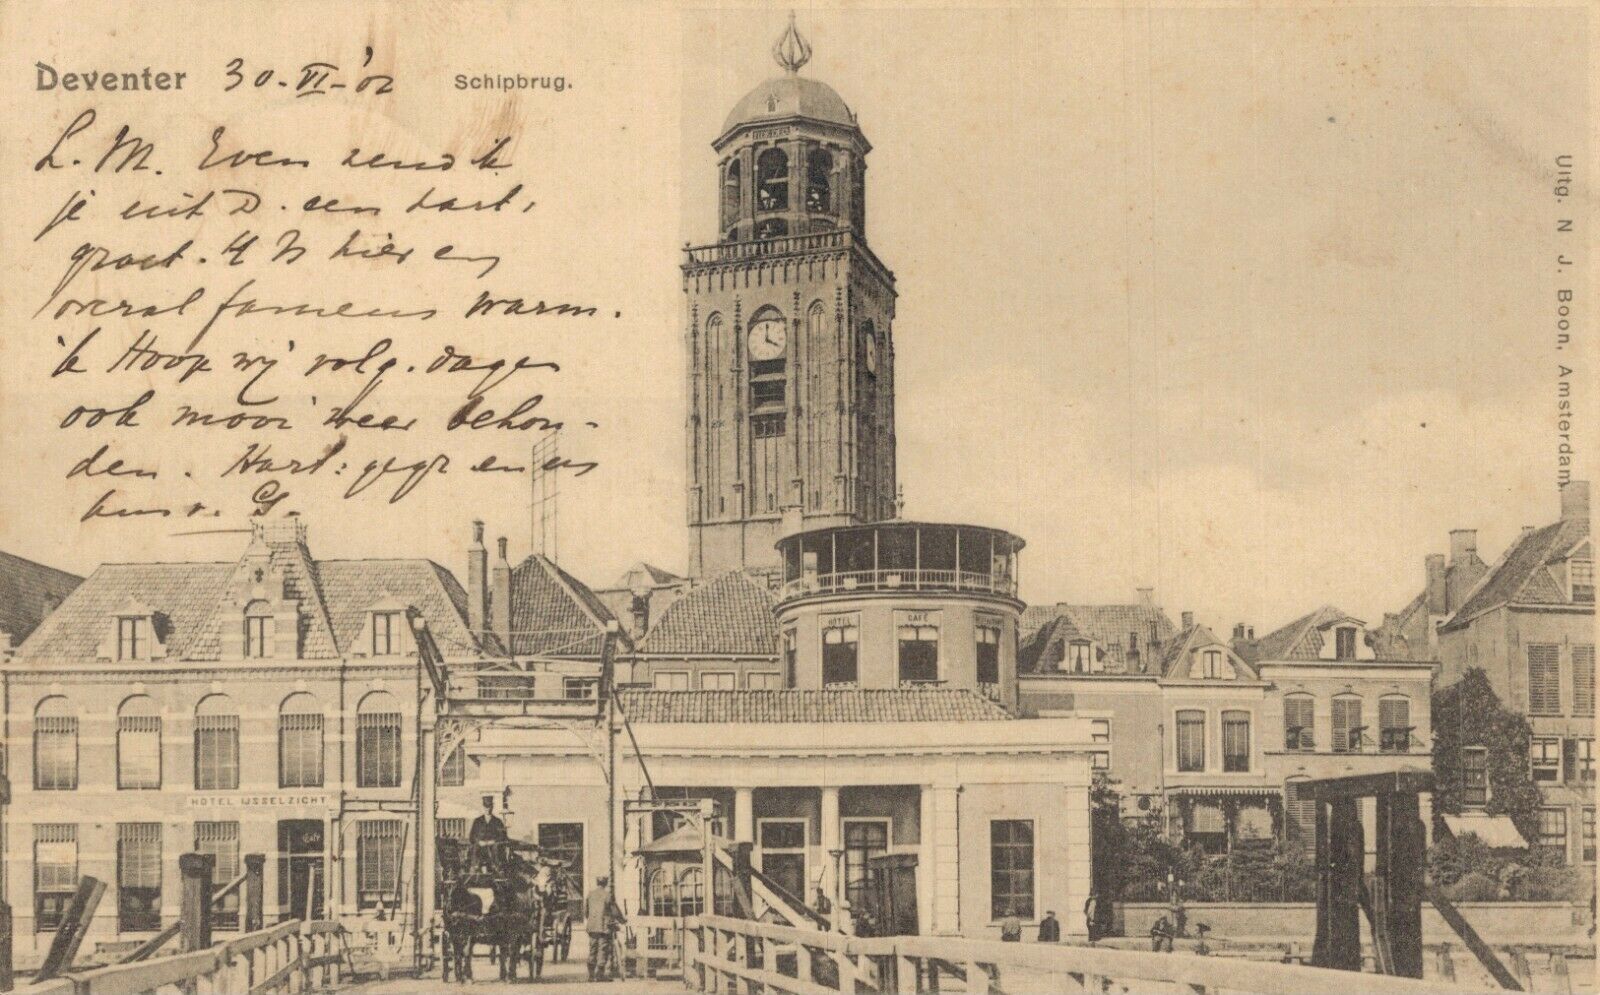 Deventer 30-VI-'02 Schipbrug.
L. M. Even zend ik
je uit D. een hart.
groet. 't Is hier en
overal fameus warm.
ik Hoop wij volg. dagen
ook mooi weer behou-
den. Hart: gegr en
v. G.
Uitg. N. J. Boon, Amsterdam.
HOTEL
CAFÉ
HOTEL IJSSELZICHT
Café